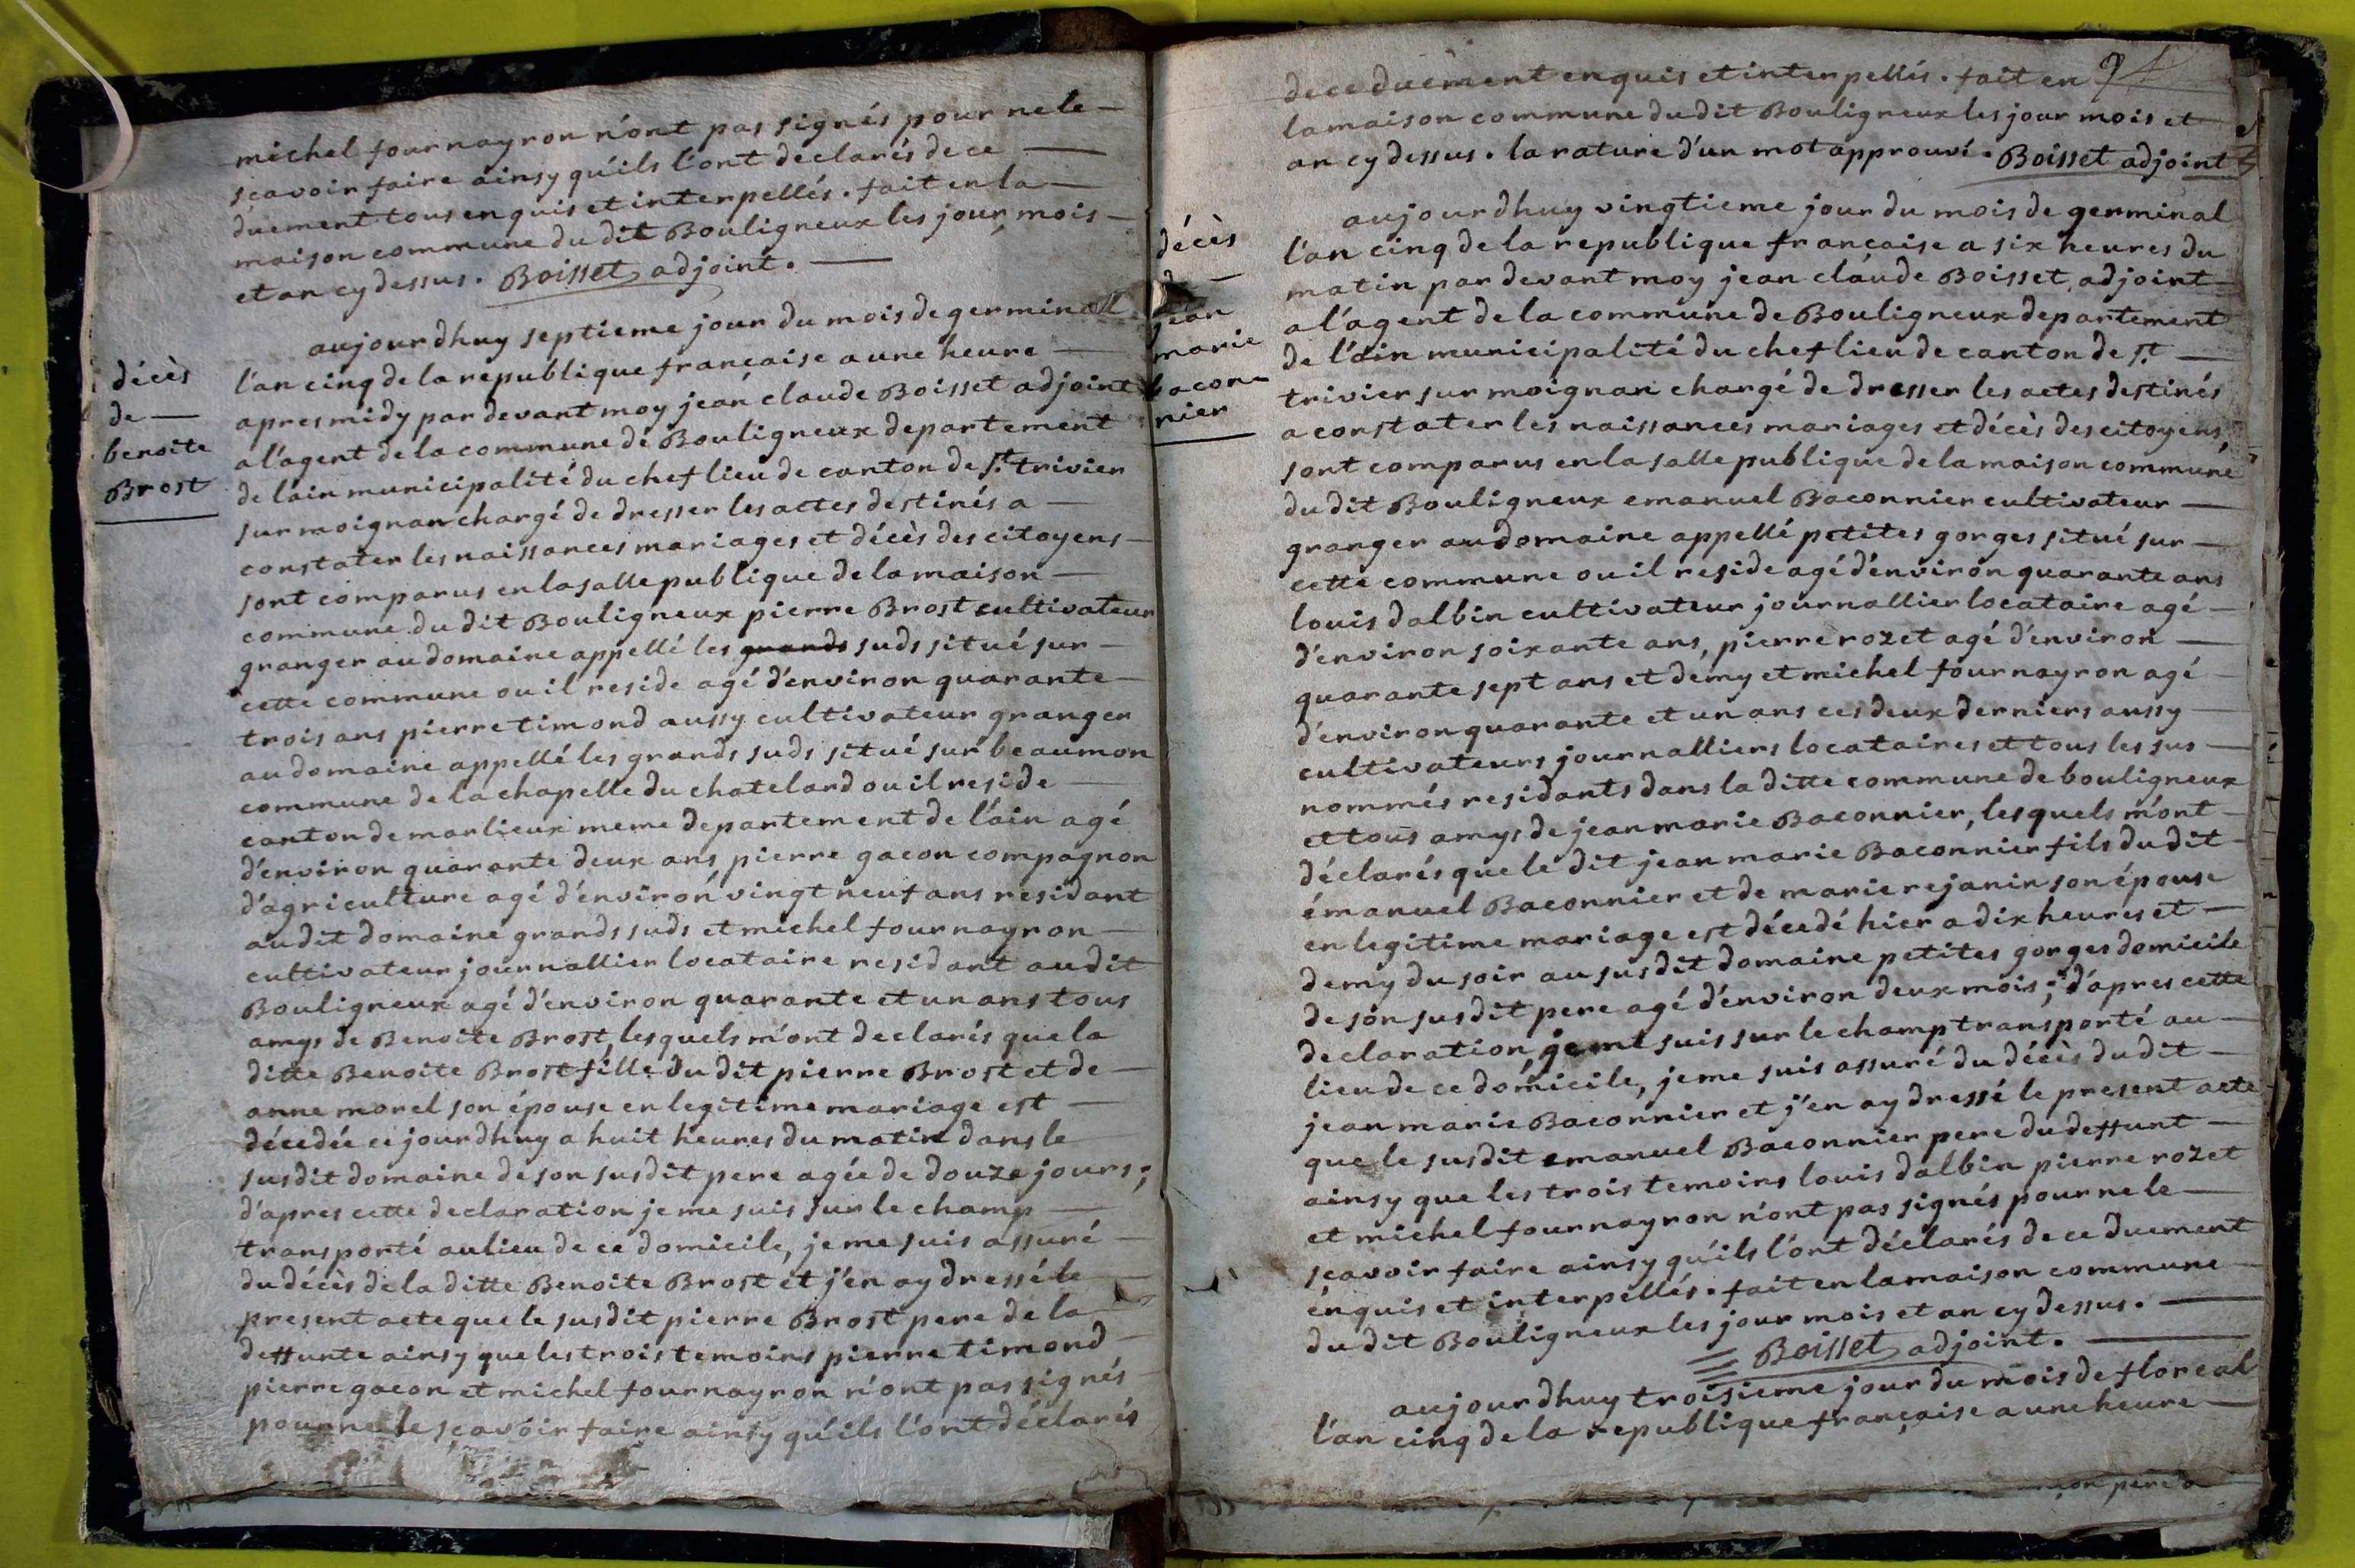 michel fournayron n'ont pas signés pour ne le
scavoir faire ainsy qu'ils l'ont declarés de ce
duement tous enquis et interpellés. fait en la
maison commune du dit Bouligneux les jour, mois
et an cy dessus. Boisset adjoint.
décès
de
benoite
Brost
aujourdhuy septieme jour du mois de germinal
l'an cinq de la republique française a une heure
apres midy par devant moy jean claude Boisset adjoint
a l'agent de la commune de Bouligneux departement
de l'ain municipalité du chef lieu de canton de st. trivier
sur moignan chargé de dresser les actes destinés a
constater les naissances mariages et décès des citoyens
sont comparus en la salle publique de la maison
commune du dit Bouligneux pierre Brost cultivateur
granger au domaine appellé les grands suds situé sur
cette commune ou il reside agé d'environ quarante
trois ans pierre timond aussy cultivateur granger
au domaine appellé les grands suds situé sur beaumon
commune de la chapelle du chatelard ou il reside
canton de marlieux meme departement de l'ain agé
d'environ quarante deux ans, pierre gacon compagnon
d'agriculture agé d'environ vingt neuf ans residant
au dit domaine grands suds et michel fournayron
cultivateur journallier locataire residant au dit
Bouligneux agé d'environ quarante et un ans tous
amys de Benoite Brost, lesquels m'ont declarés que la
ditte Benoite Brost fille du dit pierre Brost et de
anne morel son épouse en legitime mariage est
décedée ce jourdhuy a huit heures du matin dans le
susdit domaine de son susdit pere agée de douze jours;
d'apres cette declaration je me suis sur le champ
transporté au lieu de ce domicile, je me suis assuré
du décès de la ditte Benoite Brost et j'en ay dressé le
present acte que le susdit pierre Brost pere de la
deffunte ainsy que les trois temoins pierre timond
pierre gacon et michel fournayron n'ont pas signés
pour ne le scavoir faire ainsy qu'ils l'ont déclarés
de ce duement enquis et interpellés. fait en
la maison commune du dit Bouligneux les jour mois et
an cy dessus. la rature d'un mot approuvé. Boisset adjoint
décès
jean
marie
bacon
nier
aujourdhuy vingtieme jour du mois de germinal
l'an cinq de la republique française a six heures du
matin par devant moy jean claude Boisset, adjoint
a l'agent de la commune de Bouligneux departement
de l'ain municipalité du chef lieu de canton de st.
trivier sur moignan chargé de dresser les actes destinés
a constater les naissances mariages et décès des citoyens,
sont comparus en la salle publique de la maison commune
du dit Bouligneux emanuel Baconnier cultivateur
granger au domaine appellé petites gorges situé sur
cette commune ou il reside agé d'environ quarante ans
louis dalbin cultivateur journallier locataire agé
d'environ soixante ans, pierre rozet agé d'environ
quarante sept ans et demy et michel fournayron agé
d'environ quarante et un ans ces deux derniers aussy
cultivateurs journalliers locataires et tous les sus
nommés residants dans la ditte commune de bouligneux
et tous amys de jean marie Baconnier, lesquels m'ont
déclarés que le dit jean marie Baconnier fils du dit
émanuel Baconnier et de marie rejanin son épouse
en legitime mariage est décedé hier a dix heures et
demy du soir au susdit domaine petites gorges domicile
de son susdit pere agé d'environ deux mois; d'apres cette
declaration je me suis sur le champ transporté au
lieu de ce domicile, je me suis assuré du décès du dit
jean marie Baconnier et j'en ay dressé le present acte
que le susdit emanuel Baconnier pere du deffunt
ainsy que les trois temoins louis dalbin pierre rozet
et michel fournayron n'ont pas signés pour ne le
scavoir faire ainsy qu'ils l'ont déclarés de ce duement
enquis et interpellés. fait en la maison commune
du dit Bouligneux les jour mois et an cy dessus.
Boisset adjoint.
aujourdhuy troisieme jour du mois de floreal
l'an cinq de la republique française a une heure